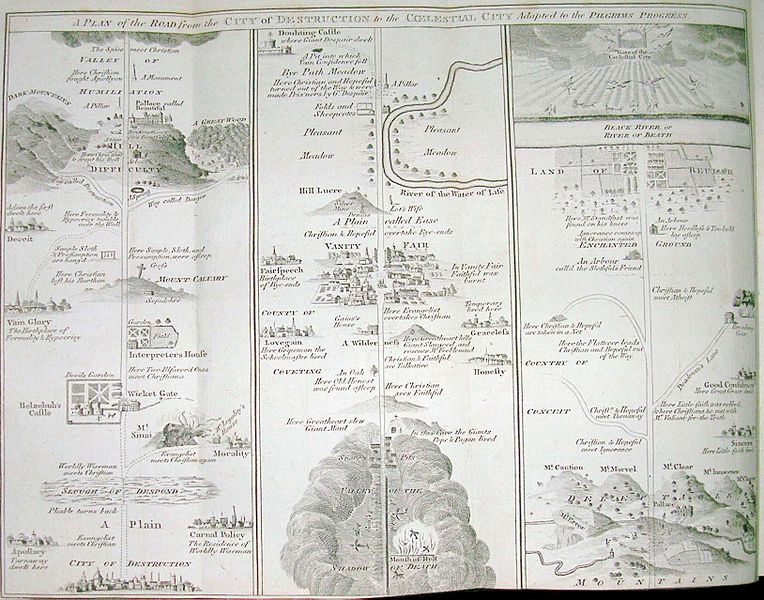 A PLAN of the ROAD from the CITY of DESTRUCTION to the CŒLESTIAL CITY Adapted to the PILGRIMS PROGRESS.
The Spies meet Christian
VALLEY OF
Here Christian
fought Apollyon
A Monument
HUMILIATION
DARK MOUNTAINS
A Pillar
Pallace called
Beautiful
A GREAT WOOD
HILL
DIFFICULTY
A Spring
Way called Destruction
Way called Danger
Adam the first
dwelt here
Deceit
Here Formality &
Hypocrisy tumble
over the Wall
Simple Sloth
& Presumption
are hang'd
Here Simple, Sloth, and
Presumption were asleep
Cross
Here Christian
lost his Burthen
MOUNT CALVARY
Sepulchre
Vain Glory
The Birthplace of
Formality & Hypocrisy
Garden
Field
Interpreters House
Devils Garden
Here Two Ill favor'd Ones
meet Christiana
Belzebub's
Castle
Wicket Gate
Mt.
Sinai
Mr. Legality's
House
Morality
Evangelist
meets Christian again
Worldly Wiseman
meets Christian
SLOUGH OF DESPOND
Pliable turns back
A Plain
Apostacy
Turnaway
dwelt here
Evangelist
meets Christian
Carnal Policy
The Residence of
Worldly Wiseman
CITY OF DESTRUCTION
Doubting Castle
where Giant Despair dwelt
A Pit into which
Vain Confidence fell
Bye Path Meadow
Here Christian and Hopeful
turned out of the Way & were
made Pris'ners by Gt. Despair
A Pillar
Folds and
Sheepcotes
Pleasant
Meadow
Pleasant
Meadow
River of the Water of Life
Hill Lucre
Silver
Mine
Demas
Lot's Wife
A Plain called Ease
Christian & Hopeful overtake Bye-ends
VANITY FAIR
Fairspeech
Birthplace
of Bye-ends
In Vanity Fair
Faithful was
burnt
COUNTY OF
Gaius's
House
Here Evangelist
overtakes Christian
Temporary
lived here
Graceless
Lovegain
Here Gripeman the
Schoolmaster lived
A Wilderness
Here Greatheart kills
Giant Slaygood, and
rescues Mr. Feeblemind
Christian & Faithful
see Talkative
Honesty
COVETING
An Oak
Here Old Honest
was found asleep
Here Christian
sees Faithful
Here Greatheart slew
Giant Maul
In this Cave the Giants
Pope & Pagan lived
Snares
Pits
VALLEY OF THE
Mouth of Hell
SHADOW OF DEATH
Gate of the
Cœlestial City
BLACK RIVER or
RIVER of DEATH
LAND OF BEULAH
Here Mr. Standfast was
found on his knees
An Arbour
Here Heedless & Too-bold
lay asleep
Ignorance comes up
with Christian again
ENCHANTED GROUND
An Arbour
call'd the Slothful's Friend
Christian & Hopeful
meet Atheist
Here Christian & Hopeful
are taken in a Net
Here the Flatterer leads
Christian and Hopeful out
of the Way
Deadman's Lane
COUNTRY OF
Good Confidence
Here Great Grace dwelt
Here Little-faith was robbed
& where Christiana &c. met with
Mr. Valiant-for-the-Truth
CONCEIT
Christn. & Hopeful
meet Turnaway
Sincere
Christian & Hopeful
meet Ignorance
Mt. Caution
Mt. Marvel
Mt. Clear
Mt. Innocence
DELECTABLE
Mt. Error
MOUNTAINS